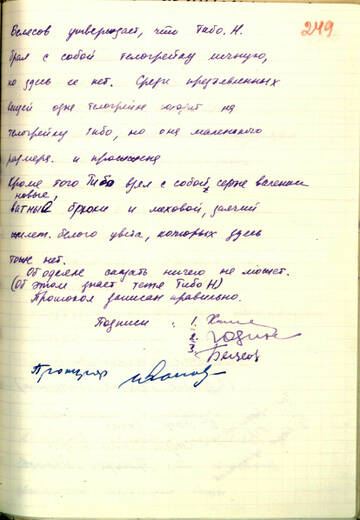 249
утверждает, что Тибо. Н.
брал с собой телогрейку личную,
но здесь ее нет. Среди предъявленных
вещей одна телогрейка на
телогрейку Тибо, но она маленького
размера. и
Кроме того Тибо взял с собой серые валенки
новые
ватные брюки и меховой, заячий
жилет. белого цвета, которых здесь
тоже нет.
Об одеяле сказать ничего не может.
(Об этом знает тетя Тибо Н)
Протокол записан правильно.
Подписи : 1.
2.
3.
Прокурор